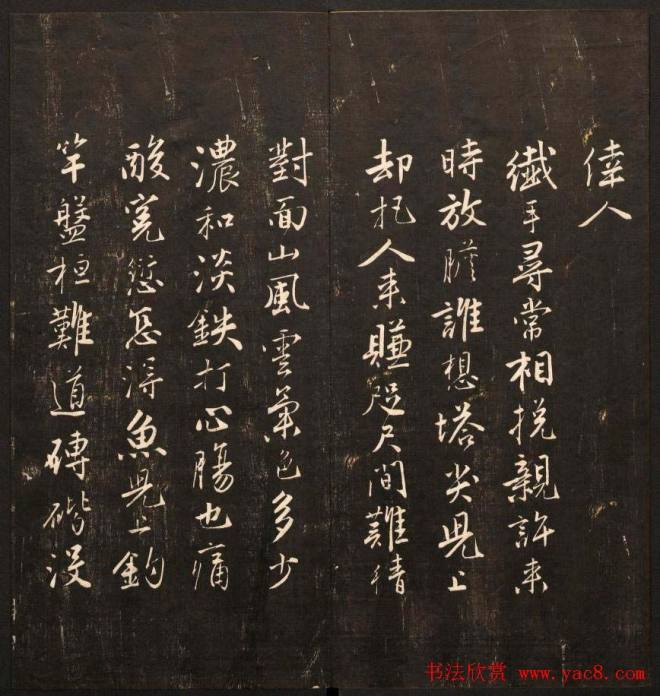 人
纖手尋常相挽親許來
時放膽誰想塔尖兒上
却把人來賺咫尺間難猜
對面山風雲氣色多少
濃和淡鉄打心腸也痛
酸寃愆怎得魚兒上鈎
竿盤桓難道磚沒
书法欣赏 www.yac8.com